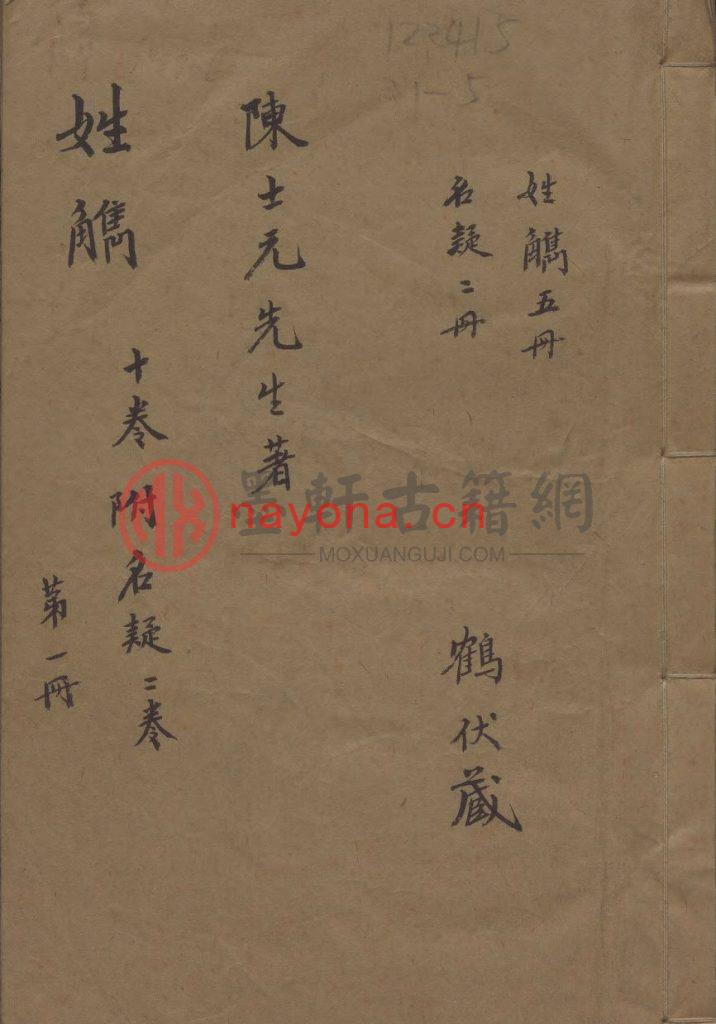 姓觿五冊
名疑二冊
鶴伏藏
陳士元先生著
姓觿
十卷附名疑二卷
第一冊
墨軒古籍網
MOXUANGUJI.COM
nayona.cn